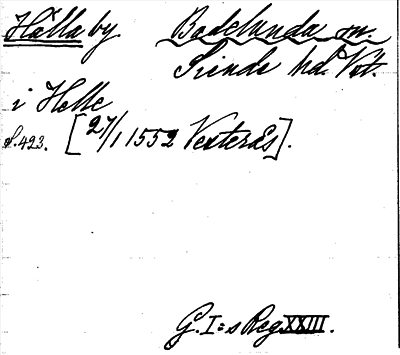 Hälla by Badelunda sn.
Siende hd. Vst.
i Helle
S. 423. [27/1 1552 Vesterås].
G. I:s Reg XXIII.